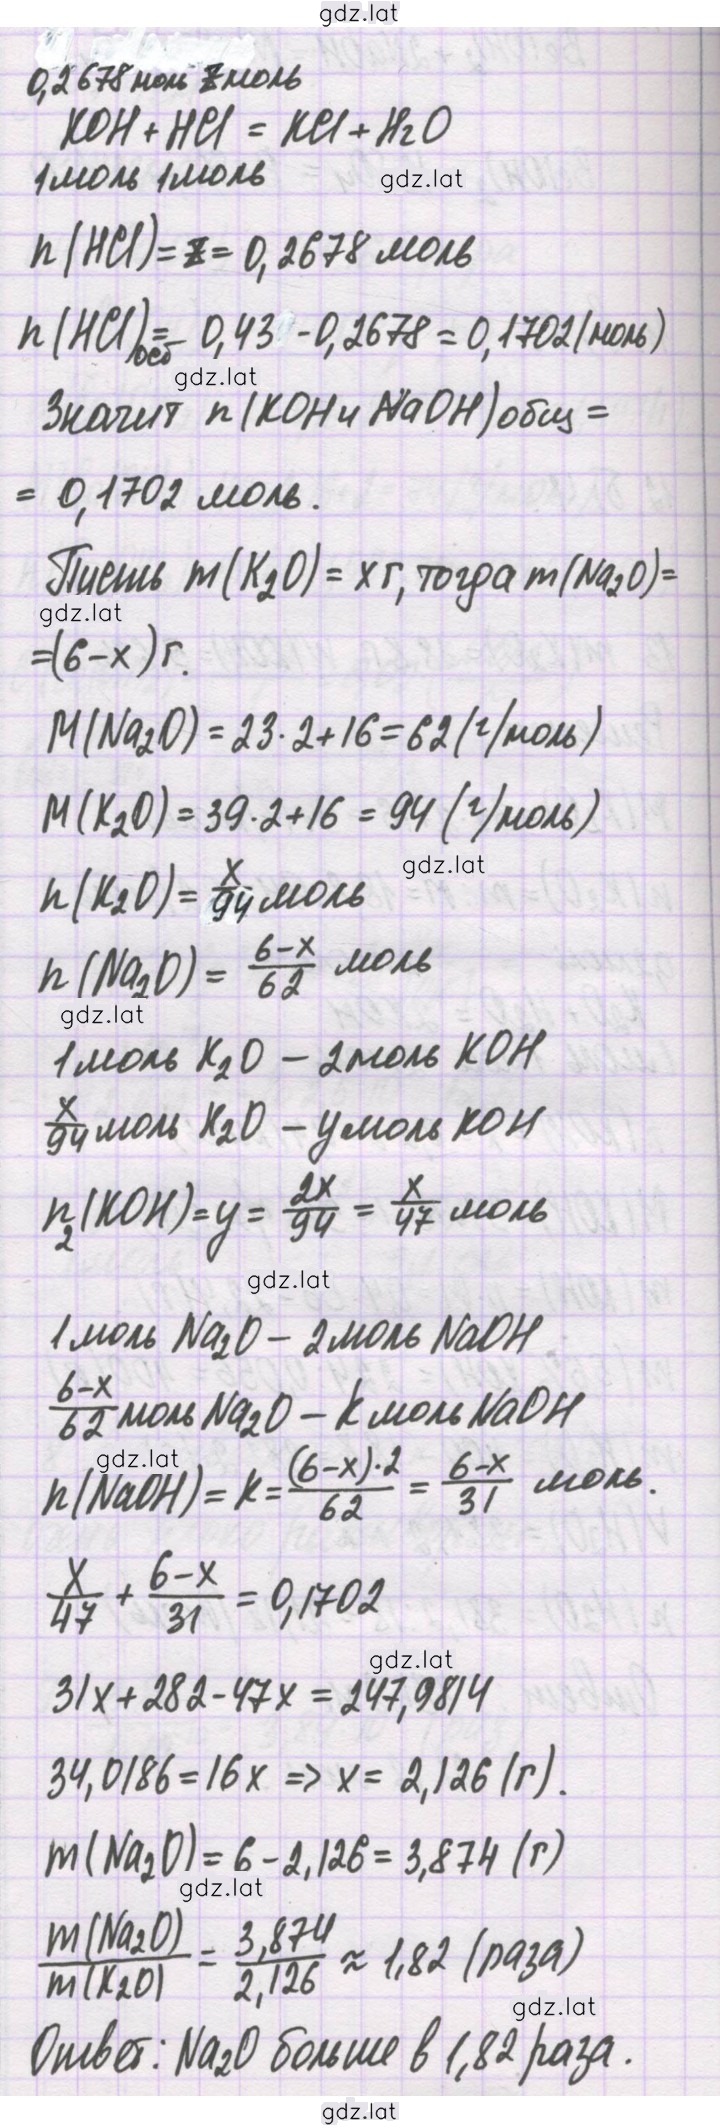 gdz.lat
0,2678 моль Z моль
KOH + HCl = KCl + H₂O
1 моль 1 моль
gdz.lat
n(HCl) = Z = 0,2678 моль
n(HCl)ост = 0,43 - 0,2678 = 0,1702 (моль)
gdz.lat
Значит n(KOH и NaOH)общ =
= 0,1702 моль.
Пусть m(K₂O) = x г, тогда m(Na₂O) =
gdz.lat
= (6-x) г.
M(Na₂O) = 23·2+16 = 62 (г/моль)
M(K₂O) = 39·2+16 = 94 (г/моль)
gdz.lat
n(K₂O) = x/94 моль
n(Na₂O) = (6-x)/62 моль
gdz.lat
1 моль K₂O – 2 моль KOH
x/94 моль K₂O – y моль KOH
n₂(KOH) = y = 2x/94 = x/47 моль
gdz.lat
1 моль Na₂O – 2 моль NaOH
(6-x)/62 моль Na₂O – k моль NaOH
gdz.lat
n(NaOH) = k = (6-x)·2/62 = (6-x)/31 моль.
x/47 + (6-x)/31 = 0,1702
gdz.lat
31x + 282 - 47x = 247,9814
34,0186 = 16x => x = 2,126 (г).
m(Na₂O) = 6 - 2,126 = 3,874 (г)
gdz.lat
m(Na₂O)/m(K₂O) = 3,874/2,126 ≈ 1,82 (раза)
gdz.lat
Ответ: Na₂O больше в 1,82 раза.
gdz.lat